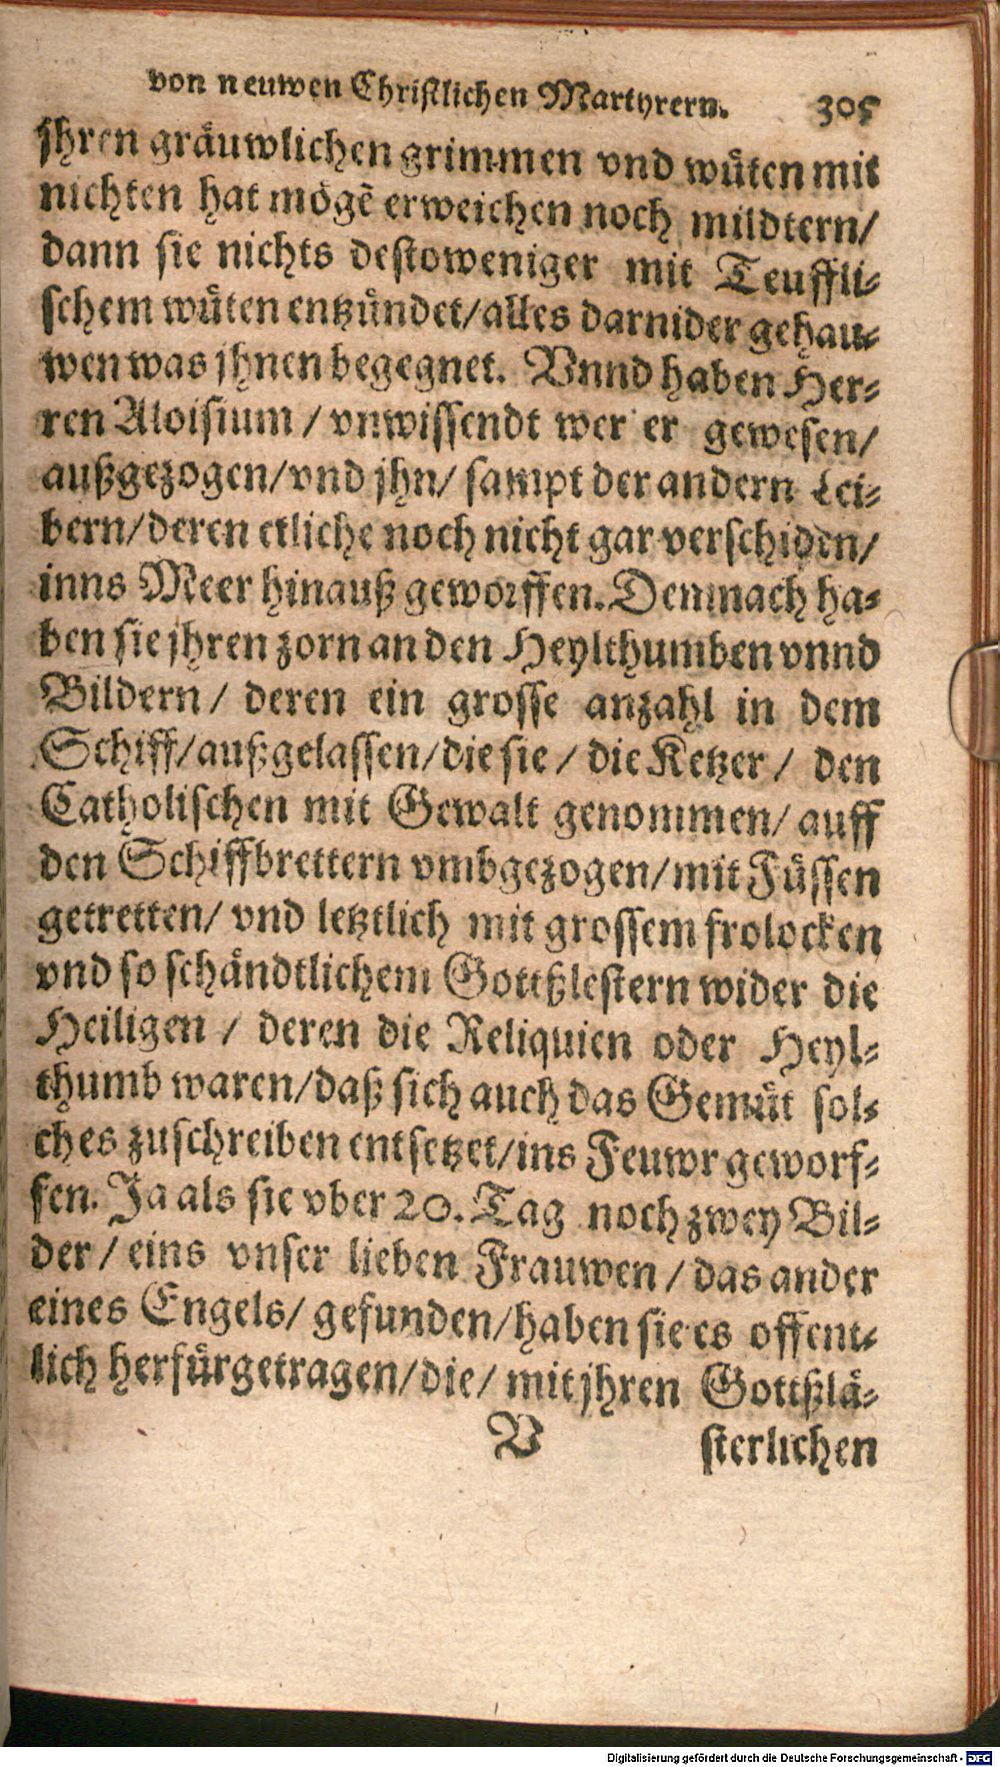 von neuwen Christlichen Martyrern. 305
jhren gräuwlichen grimmen vnd wüten mit
nichten hat mögẽ erweichen noch mildtern/
dann sie nichts destoweniger mit Teuffli-
schem wüten entzündet/alles darnider gehau-
wen was jhnen begegnet. Vnnd haben Her-
ren Aloisium / vnwissendt wer er gewesen/
außgezogen/vnd jhn/ sampt der andern Lei-
bern/deren etliche noch nicht gar verschiden/
inns Meer hinauß geworffen. Demnach ha-
ben sie jhren zorn an den Heylthumben vnnd
Bildern/ deren ein grosse anzahl in dem
Schiff/außgelassen/die sie / die Ketzer / den
Catholischen mit Gewalt genommen/ auff
den Schiffbrettern vmbgezogen/mit Füssen
getretten/ vnd letztlich mit grossem frolocken
vnd so schändtlichem Gottßlestern wider die
Heiligen / deren die Reliquien oder Heyl-
thumb waren/daß sich auch das Gemüt sol-
ches zuschreiben entsetzet/ins Feuwr geworf-
fen. Ja als sie vber 20. Tag noch zwey Bil-
der / eins vnser lieben Frauwen / das ander
eines Engels/ gefunden/haben sie es offent-
lich herfürgetragen/die/ mit jhren Gottßlä-
V sterlichen
Digitalisierung gefördert durch die Deutsche Forschungsgemeinschaft - DFG